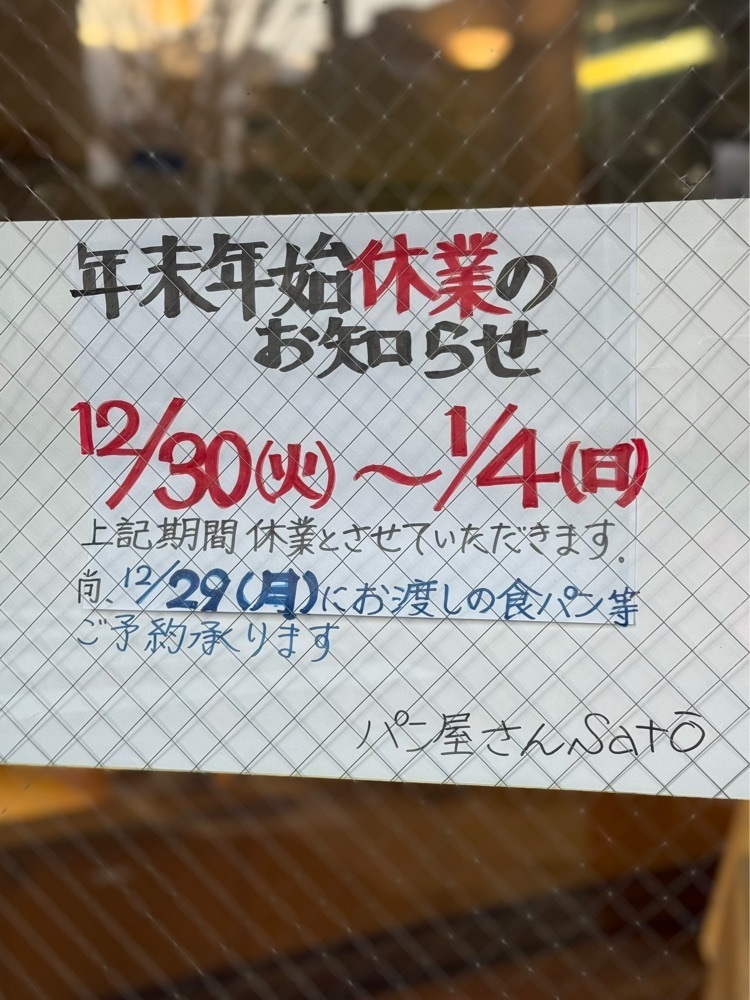 年末年始休業の
お知らせ
12/30(火)～1/4(日)
上記期間休業とさせていただきます.
尚、12/29(月)にお渡しの食パン等
ご予約承ります
パン屋さんSatō